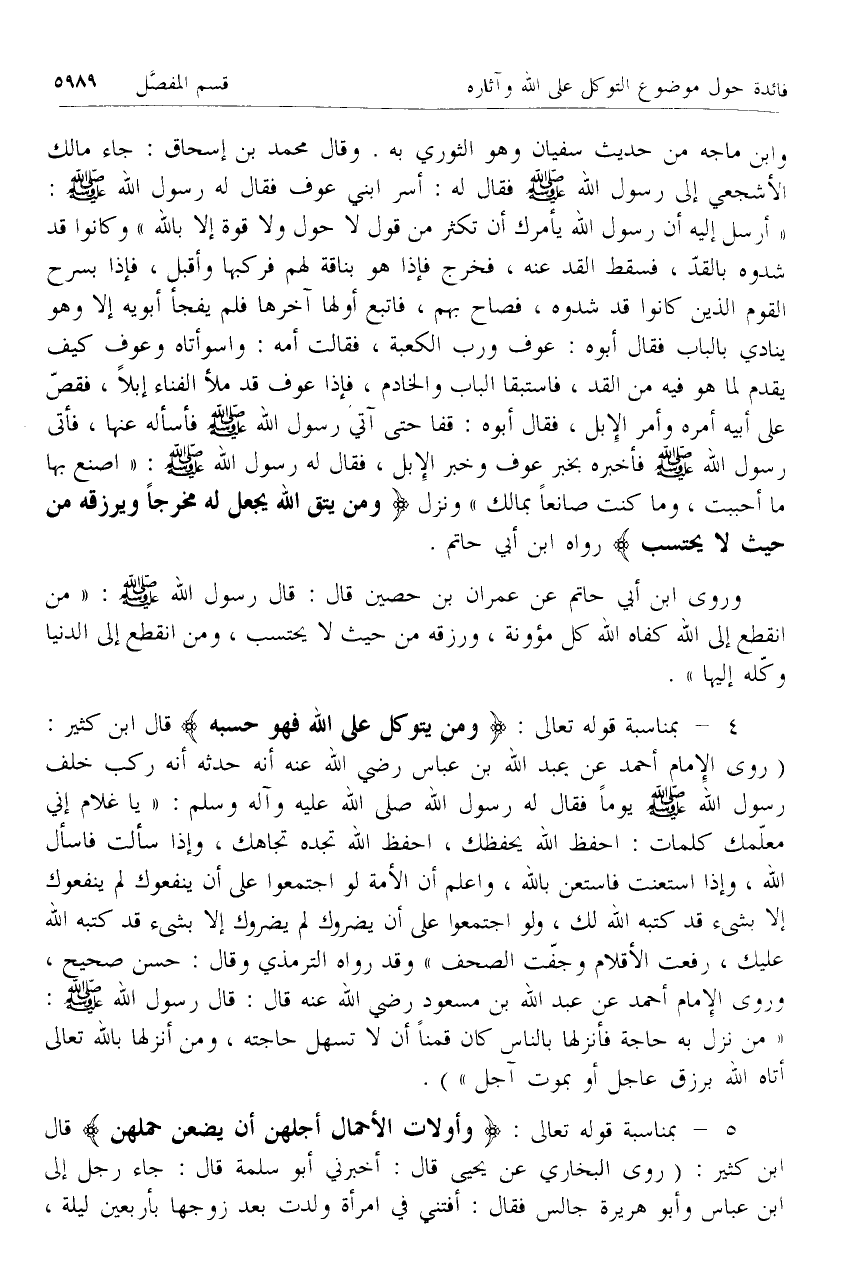 فائدة حول موضوع التوكل على الله وآثاره قسم المفصَّل ٥٩٨٩
وابن ماجه من حديث سفيان وهو الثوري به . وقال محمد بن إسحاق : جاء مالك
الأشجعي إلى رسول الله ﷺ فقال له : أسر ابني عوف فقال له رسول الله ﷺ :
« أرسل إليه أن رسول الله يأمرك أن تكثر من قول لا حول ولا قوة إلا بالله » وكانوا قد
شدوه بالقدّ ، فسقط القد عنه ، فخرج فإذا هو بناقة لهم فركبها وأقبل ، فإذا بسرح
القوم الذين كانوا قد شدوه ، فصاح بهم ، فاتبع أولها آخرها فلم يفجأ أبويه إلا وهو
ينادي بالباب فقال أبوه : عوف ورب الكعبة ، فقالت أمه : واسوأتاه وعوف كيف
يقدم لما هو فيه من القد ، فاستبقا الباب والخادم ، فإذا عوف قد ملأ الفناء إبلاً ، فقصّ
على أبيه أمره وأمر الإبل ، فقال أبوه : قفا حتى آتي رسول الله ﷺ فأسأله عنها ، فأتى
رسول الله ﷺ فأخبره بخبر عوف وخبر الإبل ، فقال له رسول الله ﷺ : « اصنع بها
ما أحببت ، وما كنت صانعاً بمالك » ونزل ﴿ ومن يتق الله يجعل له مخرجاً ويرزقه من
حيث لا يحتسب ﴾ رواه ابن أبي حاتم .
وروى ابن أبي حاتم عن عمران بن حصين قال : قال رسول الله ﷺ : « من
انقطع إلى الله كفاه الله كل مؤونة ، ورزقه من حيث لا يحتسب ، ومن انقطع إلى الدنيا
وكّله إليها » .
٤ – بمناسبة قوله تعالى : ﴿ ومن يتوكل على الله فهو حسبه ﴾ قال ابن كثير :
( روى الإمام أحمد عن عبد الله بن عباس رضي الله عنه أنه حدثه أنه ركب خلف
رسول الله ﷺ يوماً فقال له رسول الله صلى الله عليه وآله وسلم : « يا غلام إني
معلّمك كلمات : احفظ الله يحفظك ، احفظ الله تجده تجاهك ، وإذا سألت فاسأل
الله ، وإذا استعنت فاستعن بالله ، واعلم أن الأمة لو اجتمعوا على أن ينفعوك لم ينفعوك
إلا بشىء قد كتبه الله لك ، ولو اجتمعوا على أن يضروك لم يضروك إلا بشىء قد كتبه الله
عليك ، رفعت الأقلام وجفّت الصحف » وقد رواه الترمذي وقال : حسن صحيح ،
وروى الإمام أحمد عن عبد الله بن مسعود رضي الله عنه قال : قال رسول الله ﷺ :
« من نزل به حاجة فأنزلها بالناس كان قمناً أن لا تسهل حاجته ، ومن أنزلها بالله تعالى
أتاه الله برزق عاجل أو بموت آجل » ) .
٥ – بمناسبة قوله تعالى : ﴿ وأولات الأحمال أجلهن أن يضعن حملهن ﴾ قال
ابن كثير : ( روى البخاري عن يحيى قال : أخبرني أبو سلمة قال : جاء رجل إلى
ابن عباس وأبو هريرة جالس فقال : أفتني في امرأة ولدت بعد زوجها بأربعين ليلة ،